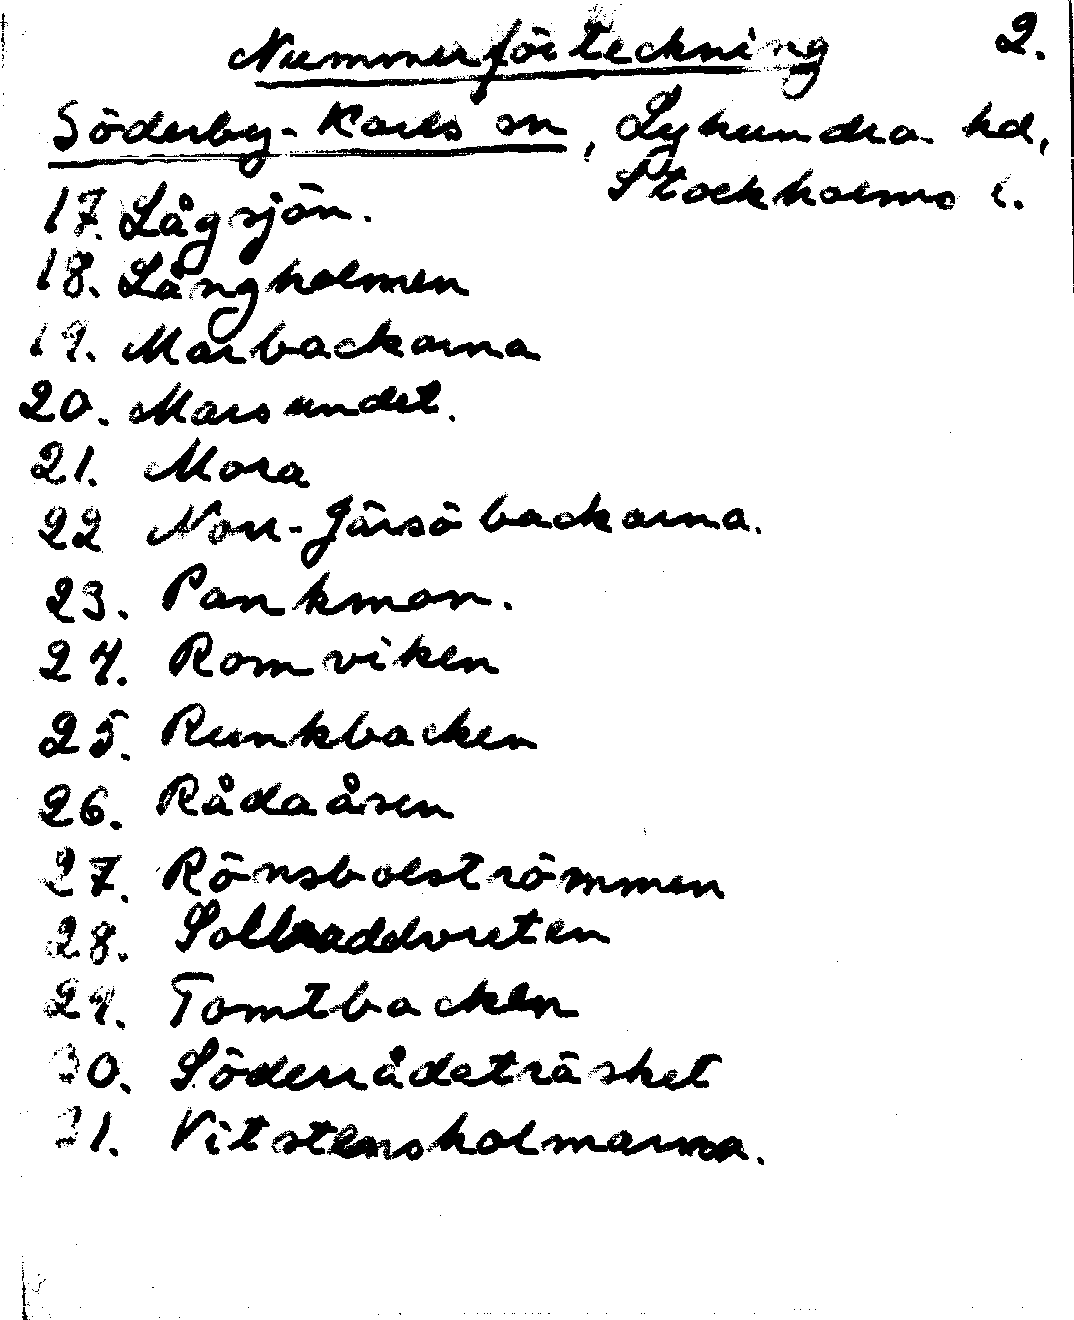 Nummerförteckning 2.
Söderby-Karls sn, Lyhundra hd,
Stockholms l.
17. Lågsjön.
18. Långholmen
19. Marbackarna
20. Marsundet.
21. Mora
22 Norr-Järsöbackarna.
23. Pankmon.
24. Romviken
25. Runkbacken
26. Rådaåsen
27. Rönsbolströmmen
28. Solbraddvreten
29. Tomtbacken
30. Söderrådaträsket
31. Vitstensholmarna.